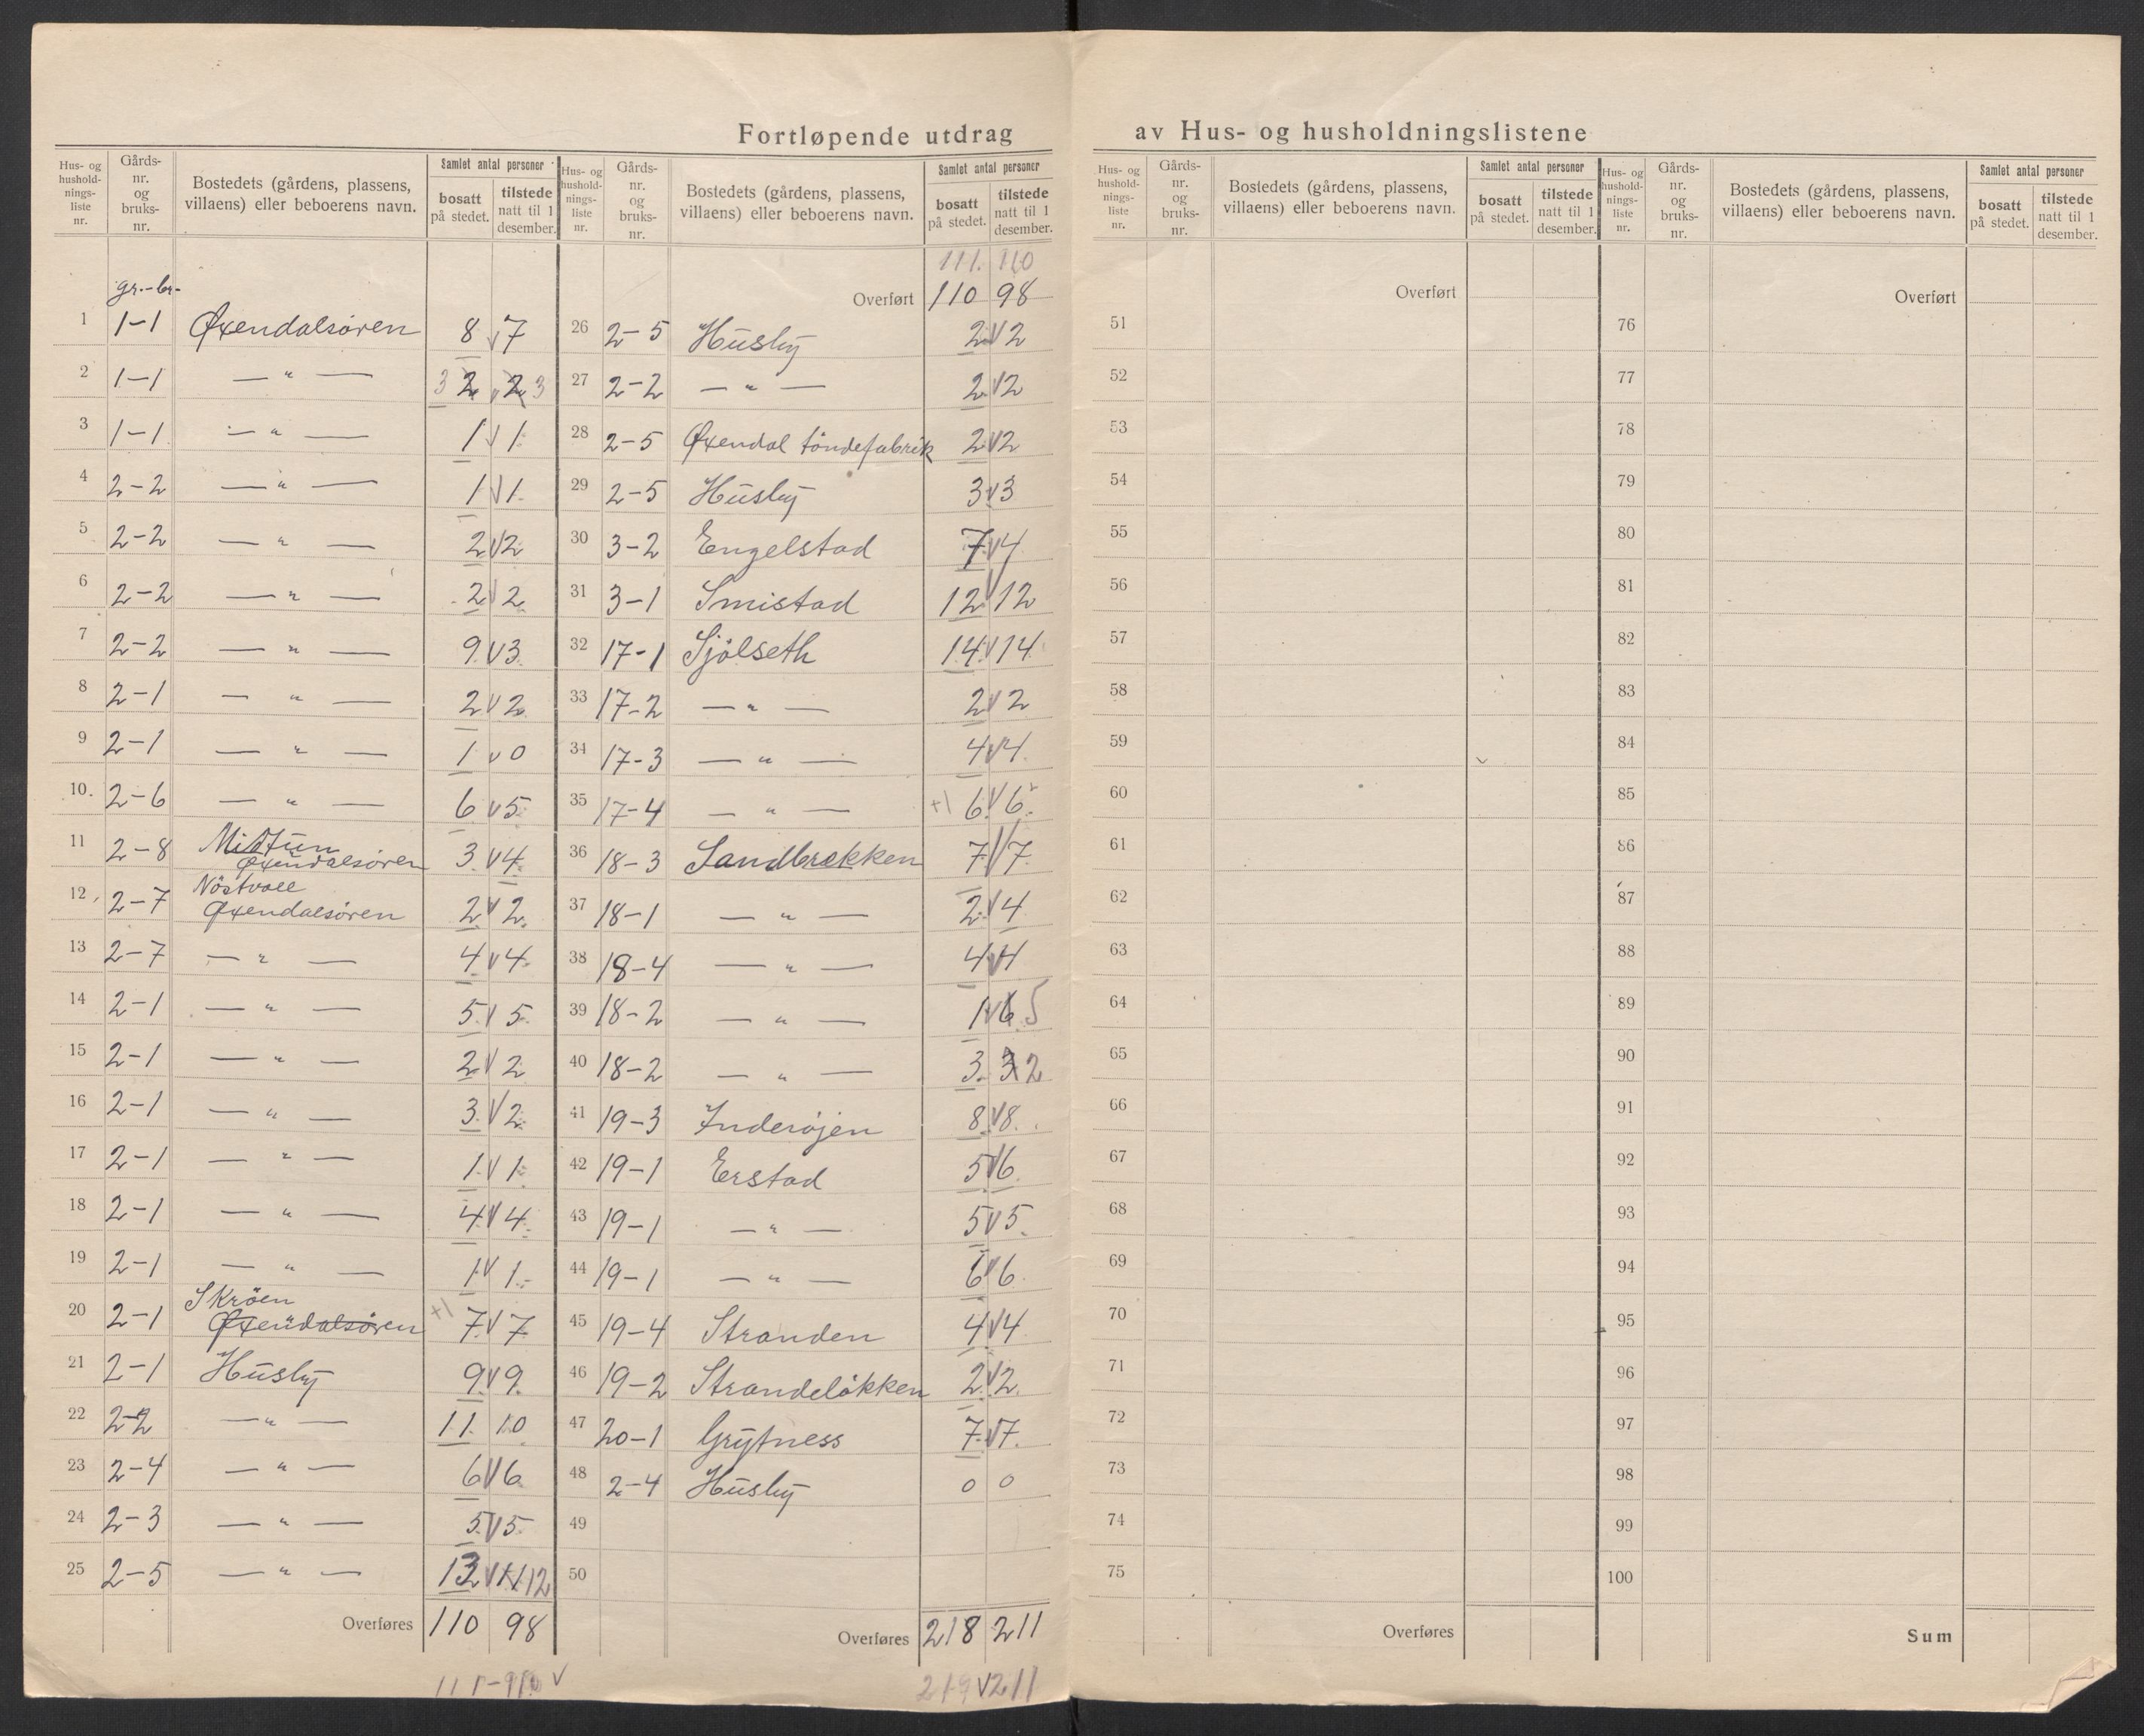 Fortløpende utdrag av Hus- og husholdningslistene
Hus- og husholdningsliste nr. | Gårdsnr. og bruksnr. | Bostedets (gårdens, plassens, villaens) eller beboerens navn. | Samlet antal personer | bosatt på stedet. | tilstede natt til 1 desember.
gr.-br.
1 1-1 Øxendalsøren 8 7
2 1-1 — " — 3 2 2 3
3 1-1 — " — 1 1
4 2-2 — " — 1 1
5 2-2 — " — 2 2
6 2-2 — " — 2 2
7 2-2 — " — 9 3
8 2-1 — " — 2 2
9 2-1 — " — 1 0
10. 2-6 — " — 6 5
11 2-8 Midtun Øxendalsøren 3 4
12 2-7 Nöstvoll Øxendalsøren 2 2
13 2-7 — " — 4 4
14 2-1 — " — 5 5
15 2-1 — " — 2 2
16 2-1 — " — 3 2
17 2-1 — " — 1 1
18 2-1 — " — 4 4
19 2-1 — " — 1 1
20 2-1 Skröen Øxendalsøren +1 7 7
21 2-1 Husby 9 9
22 2-2 — " — 11 10
23 2-4 — " — 6 6
24 2-3 — " — 5 5
25 2-5 — " — 13 12
Overføres 110 98
Hus- og husholdningsliste nr. | Gårdsnr. og bruksnr. | Bostedets (gårdens, plassens, villaens) eller beboerens navn. | Samlet antal personer | bosatt på stedet. | tilstede natt til 1 desember.
111. 110
Overført 110 98
26 2-5 Husby 2 2
27 2-2 — " — 2 2
28 2-5 Øxendal töndefabrik 2 2
29 2-5 Husby 3 3
30 3-2 Engelstad 7 4
31 3-1 Smistad 12 12
32 17-1 Sjölseth 14 14
33 17-2 — " — 2 2
34 17-3 — " — 4 4
35 17-4 — " — +1 6 6
36 18-3 Sandbrekken 7 7
37 18-1 — " — 2 4
38 18-4 — " — 4 4
39 18-2 — " — 1 6 5
40 18-2 — " — 3 3 2
41 19-3 Inderöjen 8 8
42 19-1 Erstad 5 6
43 19-1 — " — 5 5
44 19-1 — " — 6 6
45 19-4 Stranden 4 4
46 19-2 Strandelökken 2 2
47 20-1 Grytness 7 7
48 2-4 Husby 0 0
49
50
Overføres 218 211
219 211
Hus- og husholdningsliste nr. | Gårdsnr. og bruksnr. | Bostedets (gårdens, plassens, villaens) eller beboerens navn. | Samlet antal personer | bosatt på stedet. | tilstede natt til 1 desember.
Overført
51
52
53
54
55
56
57
58
59
60
61
62
63
64
65
66
67
68
69
70
71
72
73
74
75
Overføres
Hus- og husholdningsliste nr. | Gårdsnr. og bruksnr. | Bostedets (gårdens, plassens, villaens) eller beboerens navn. | Samlet antal personer | bosatt på stedet. | tilstede natt til 1 desember.
Overført
76
77
78
79
80
81
82
83
84
85
86
87
88
89
90
91
92
93
94
95
96
97
98
99
100
Sum